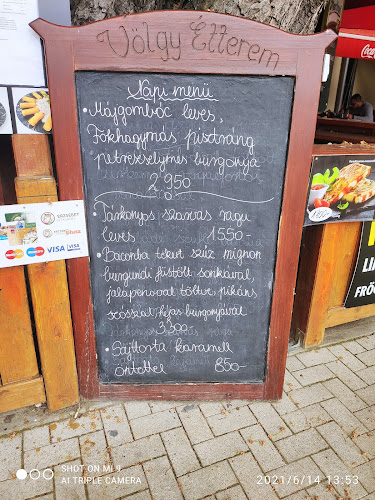 Völgy Étterem
Napi menü
• Májgombóc leves,
Fokhagymás pisztráng
petrezselymes burgonya
2 950
• Tárkonyos szarvas ragu
leves 1550.-
• Baconba tekert szűz mignon
burgundi füstölt sonkával
jalapenoval töltve, pikáns
szósszal, héjas burgonyával
3300
• Sajttorta karamell
öntettel 850-
Coca-Cola
VISA
VISA
1350
SHOT ON MI 9
AI TRIPLE CAMERA
2021/6/14 13:53